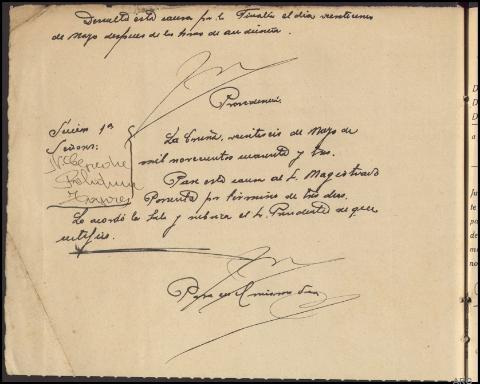 Devuelta esta causa por la Fiscalía el día veinticinco
de Mayo despues de las horas de audiencia.
Providencia:
Sección 1ª
Señores:
La Coruña, veintiseis de Mayo de
mil novecientos cuarenta y tres.
Pase esta causa al S. Magistrado
Ponente por término de tres dias.
Lo acordó la Sala y rubrica el S. Presidente de que
certifico.
Pasa en el mismo día